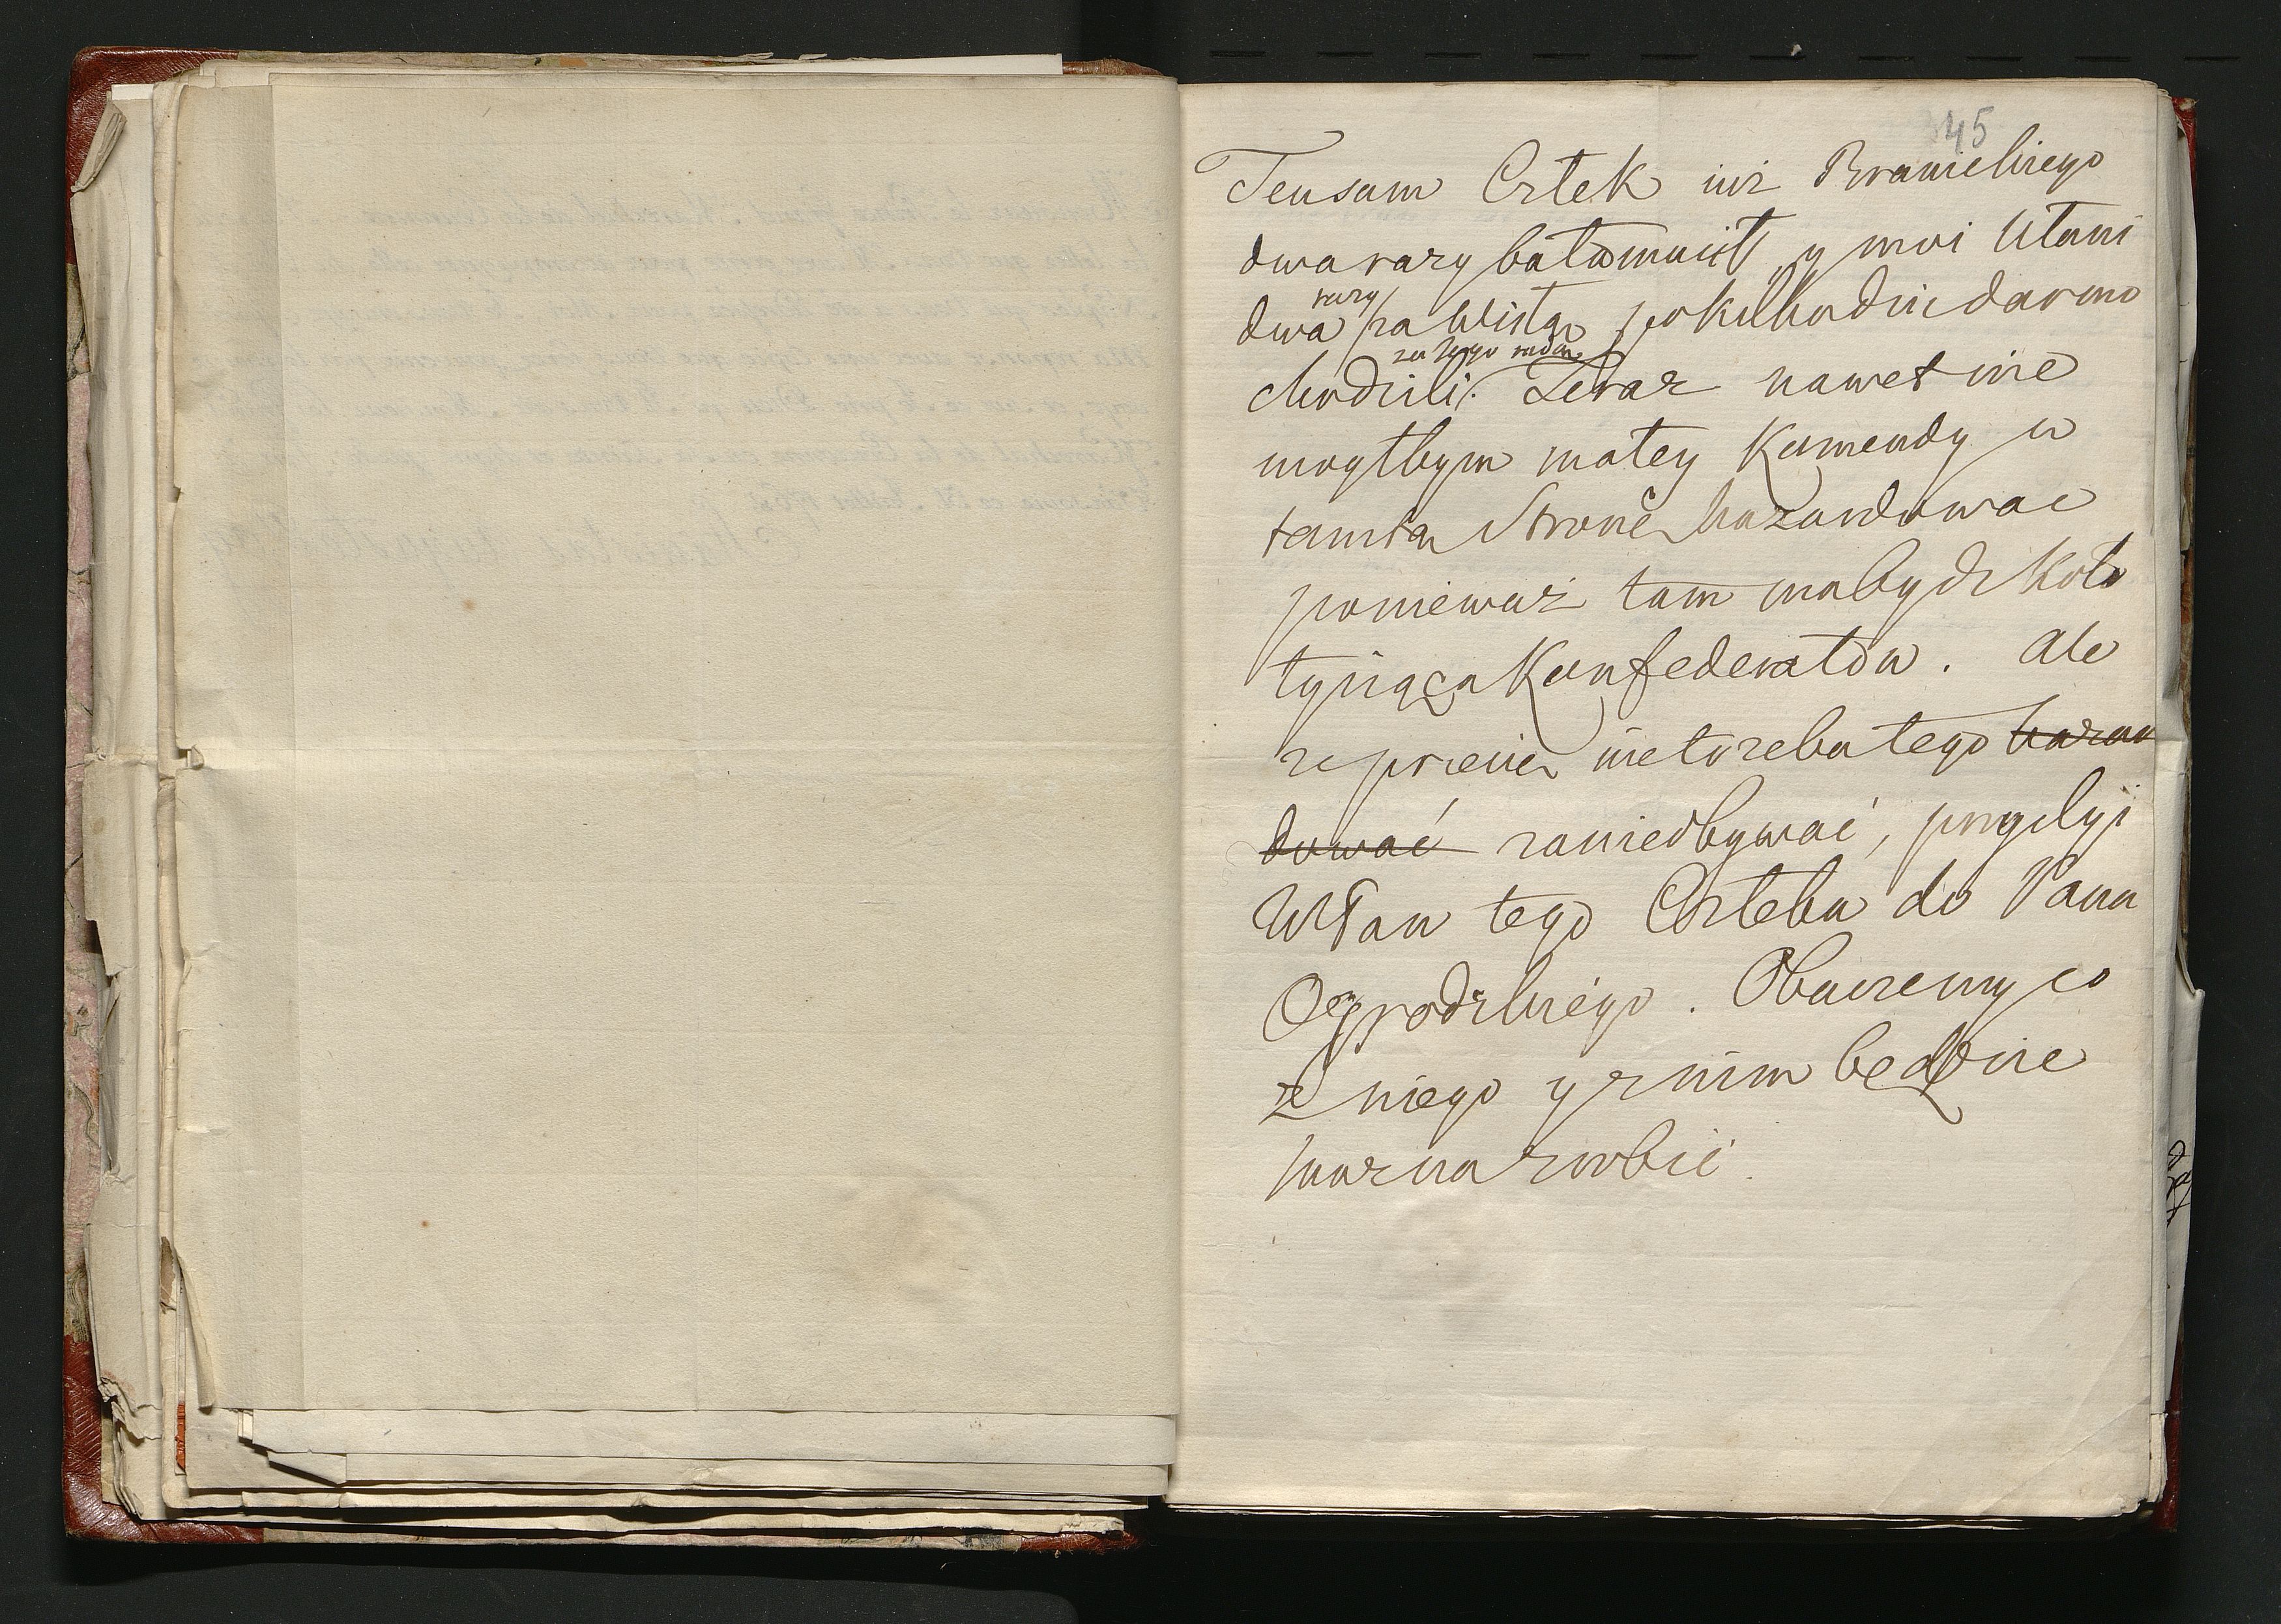 45
Tensam Człek iuż Branickiego
dwa razy bałamucił, y moi Ułani
dwa razy za Wisłę po kilkodni darmo
chodzili za Jego radą. Teraz nawet nie
mogłbym małey Kamendy w
tamtą Stronę hazardować
ponieważ tam ma bydź koło
tysiąca Konfederatów. Ale
zapewne nietrzeba tego hazar
dować zaniedbywać, poszlyi
WPan tego Człeka do Pana
Ogrodzkiego. Obaczemy co
z niego y z nim będzie
można zrobić.